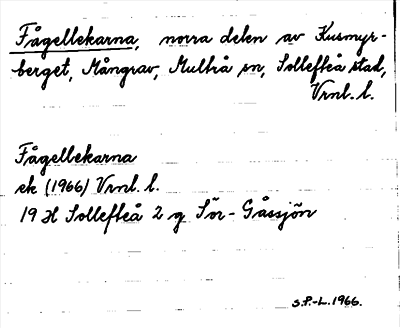 Fågellekarna, norra delen av Kusmyr-
berget, Mångrav, Multrå sn, Sollefteå stad,
Vrnl. l.
Fågellekarna
ek (1966) Vrnl. l.
19 H Sollefteå 2 g Sör-Gåssjön
S.P.-L. 1966.